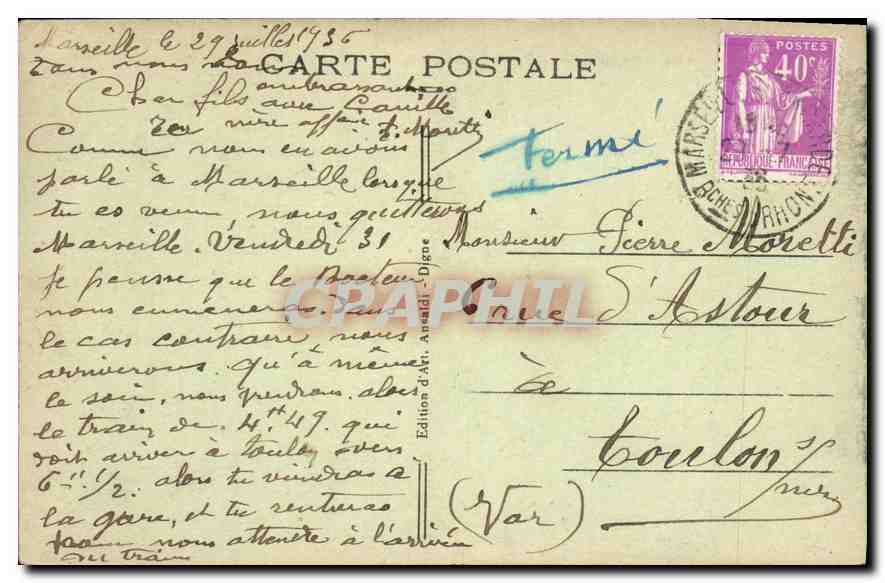 Marseille le 29 juillet 1936
CARTE POSTALE
Tous nous
embrassant
Cher fils avec Camille
mère affec Moretti
Comme nous en avions
parlé à Marseille lorsque
tu es venu, nous quitterons
Marseille. Vendredi 31
je pense que le Docteur
nous emmeneras. Dans
le cas contraire, nous
arriverons qu'à même
le soir, nous prendrons alors
le train de 4.H 49. qui
doit arriver à toulon vers
6H 1/2. alors tu viendras a
la gare, et tu rentreras
pour nous attendre à l'arrivée
du train
fermé
POSTES
40c
RÉPUBLIQUE-FRANÇAISE
MARSEILLE
BCHES DU RHONE
Monsieur Pierre Moretti
6 rue d'Astour
à
toulon s/mer
(Var)
Edition d'Art. Ansaldi - Digne
CPAPHIL